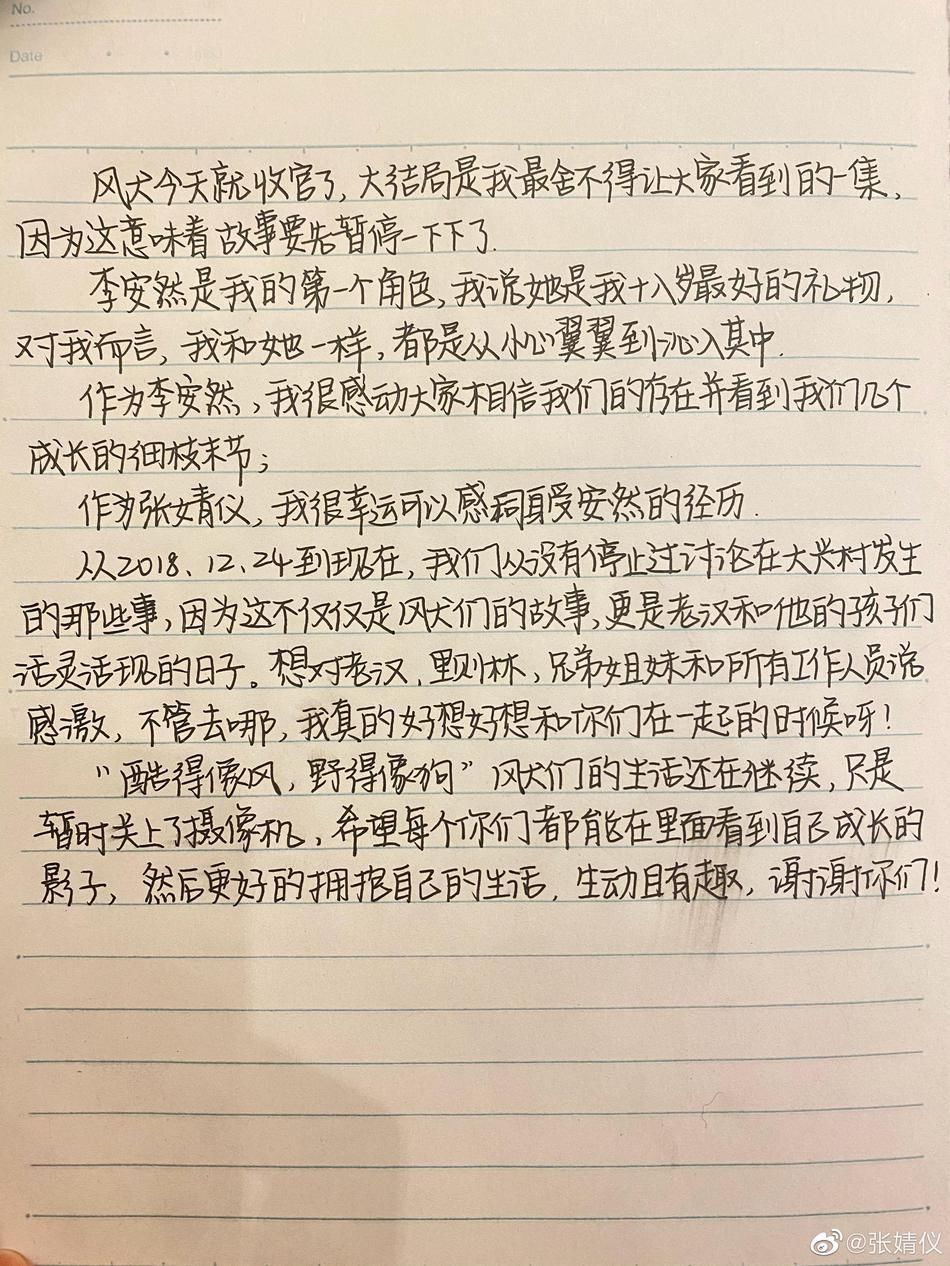 No.
Date
风犬今天就收官了,大结局是我最舍不得让大家看到的一集,
因为这意味着故事要先暂停一下下了.
李安然是我的第一个角色,我说她是我十八岁最好的礼物,
对我而言,我和她一样,都是从小心翼翼到沁入其中.
作为李安然,我很感动大家相信我们的存在并看到我们几个
成长的细枝末节;
作为张婧仪,我很幸运可以感同身受安然的经历.
从2018.12.24到现在,我们从没有停止过讨论在大兴村发生
的那些事,因为这不仅仅是风犬们的故事,更是老汉和他的孩子们
活灵活现的日子。想对老汉,里则林,兄弟姐妹和所有工作人员说
感激,不管去哪,我真的好想好想和你们在一起的时候呀!
“酷得像风,野得像狗”风犬们的生活还在继续,只是
暂时关上了摄像机,希望每个你们都能在里面看到自己成长的
影子,然后更好的拥抱自己的生活,生动且有趣,谢谢你们!
@张婧仪